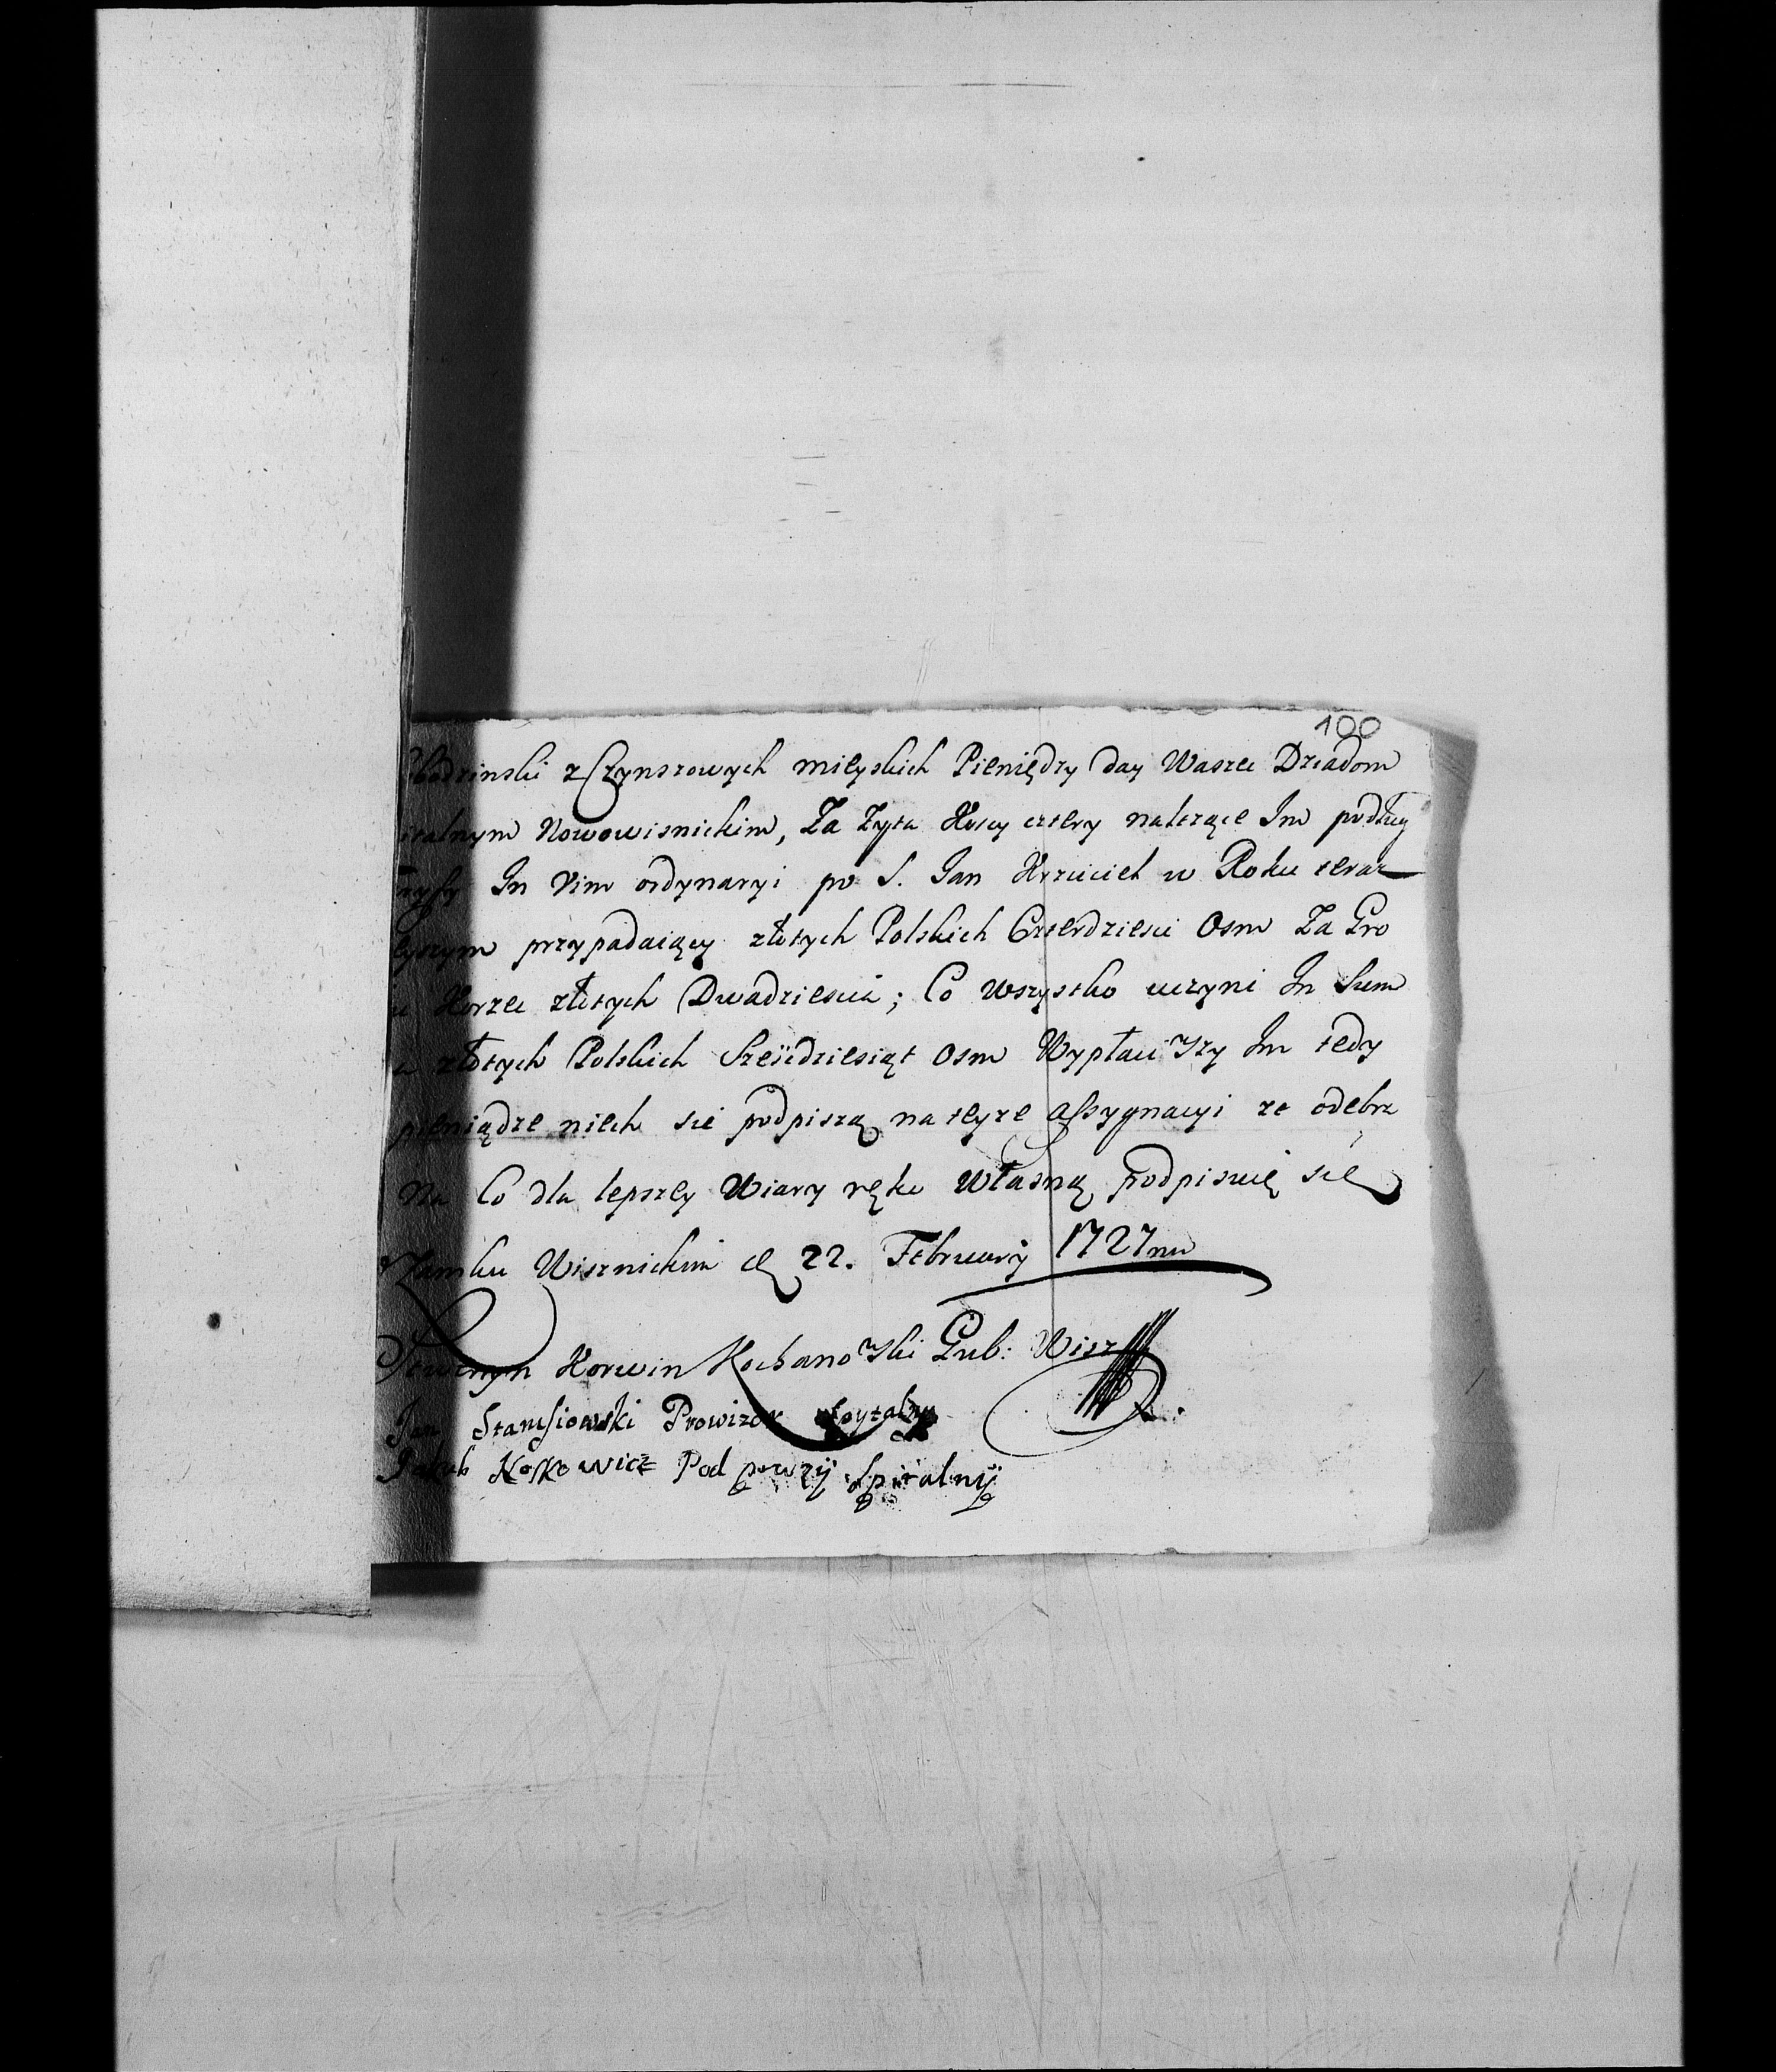 100
z Czynszowych mieyskich Pieniędzy day Wasze Dziadom
italnym Nowowisnickim, Za Zyta Korcy cztery nalezące Im podług
In Vim ordynaryi po S. Jan Krzciciel w Roku teraz
eyszym przypadaiący złotych Polskich Czterdziesci Osm Za Gro
u Korzec złotych Dwadziescia; Co wszystko uczyni In Sum
złotych Polskich Szeićdziesiąt osm Wypłaciwszy Im tedy
pieniądze niech sie podpiszą na teyze assygnacyi ze odebra
Na Co dla lepszey Wiary ręką Własną podpisuię się
w Zamku Wisznickim d 22. February 1727mo
Seweryn Korwin Kochanowski Gub: Wisz
Jan Stanisiowski Prowizor spytalny
Jakub Noskowicz Pod spitalny